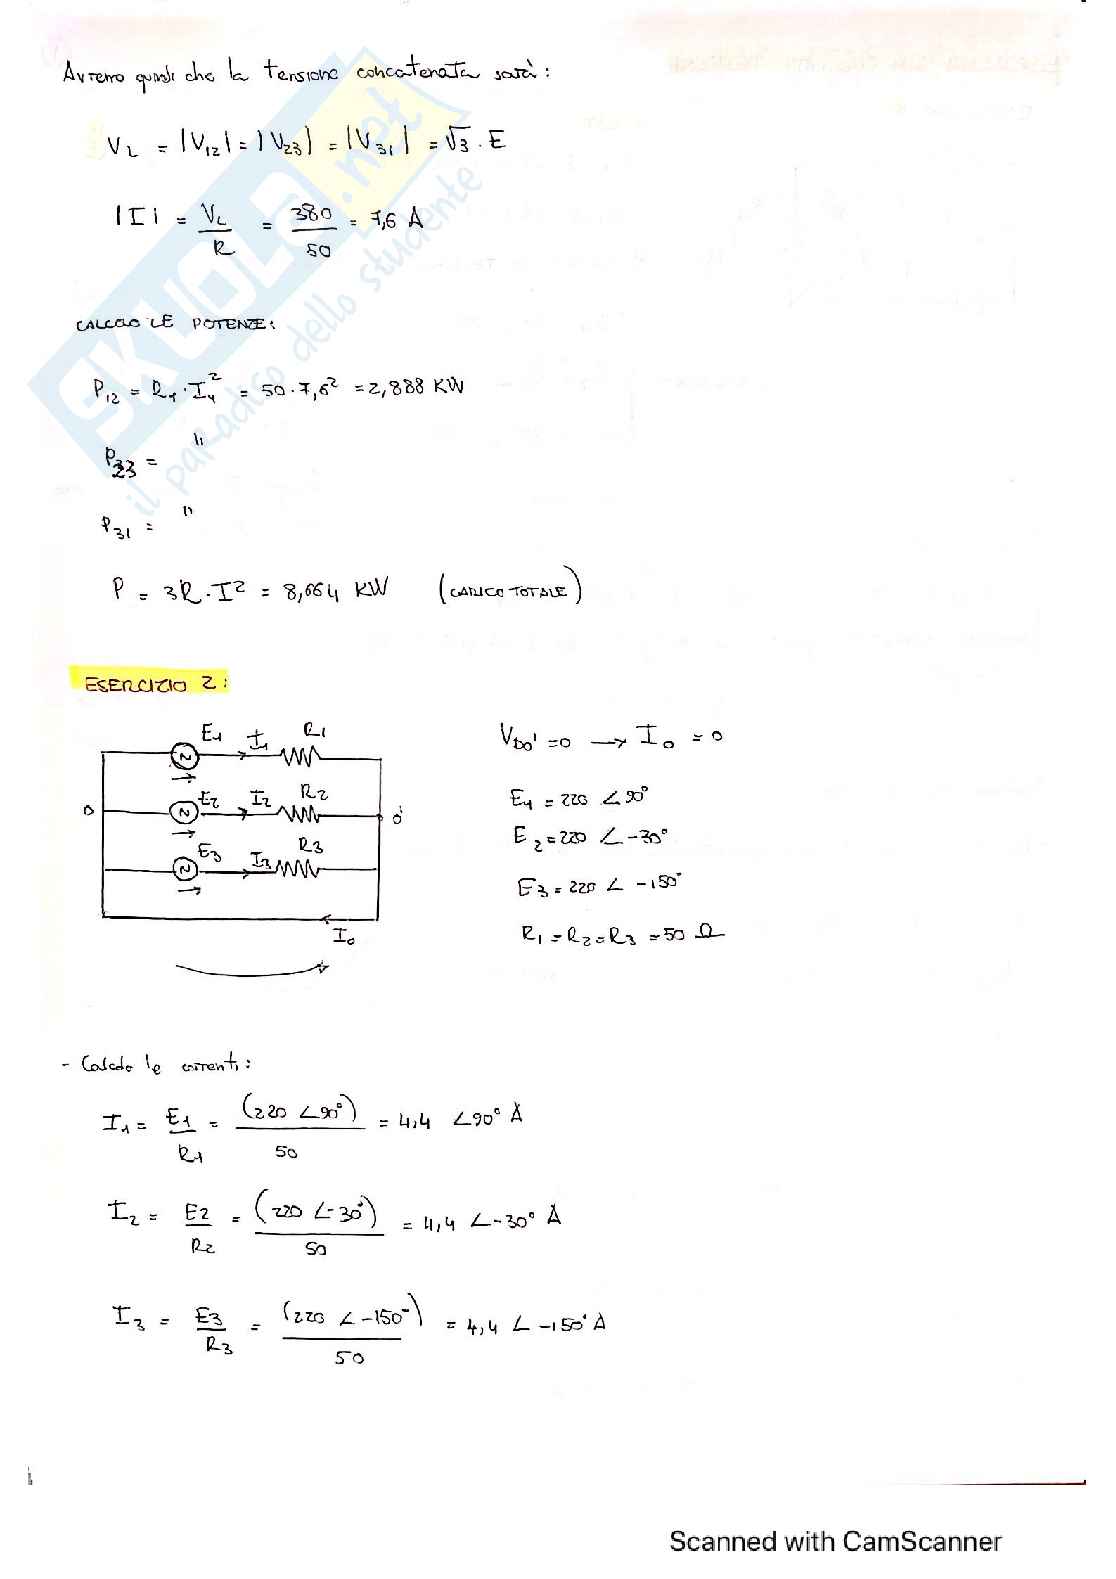 Avremo quindi che la tensione concatenata sarà:
V_L = |V_12| = |V_23| = |V_31| = √3 · E
|I| = V_L / R = 380 / 50 = 7,6 A
CALCOLO LE POTENZE:
P_12 = R_1 · I_1^2 = 50 · 7,6^2 = 2,888 KW
P_23 = "
P_31 = "
P = 3R · I^2 = 8,664 KW (CARICO TOTALE)
ESERCIZIO 2:
E_1 I_1 R_1
E_2 I_2 R_2
0 0'
E_3 I_3 R_3
I_0
V_00' = 0 → I_0 = 0
E_1 = 220 ∠90°
E_2 = 220 ∠-30°
E_3 = 220 ∠-150°
R_1 = R_2 = R_3 = 50 Ω
- Calcolo le correnti:
I_1 = E_1 / R_1 = (220 ∠90°) / 50 = 4,4 ∠90° A
I_2 = E_2 / R_2 = (220 ∠-30°) / 50 = 4,4 ∠-30° A
I_3 = E_3 / R_3 = (220 ∠-150°) / 50 = 4,4 ∠-150° A
SKUOLA.net
il paradiso dello studente
Scanned with CamScanner